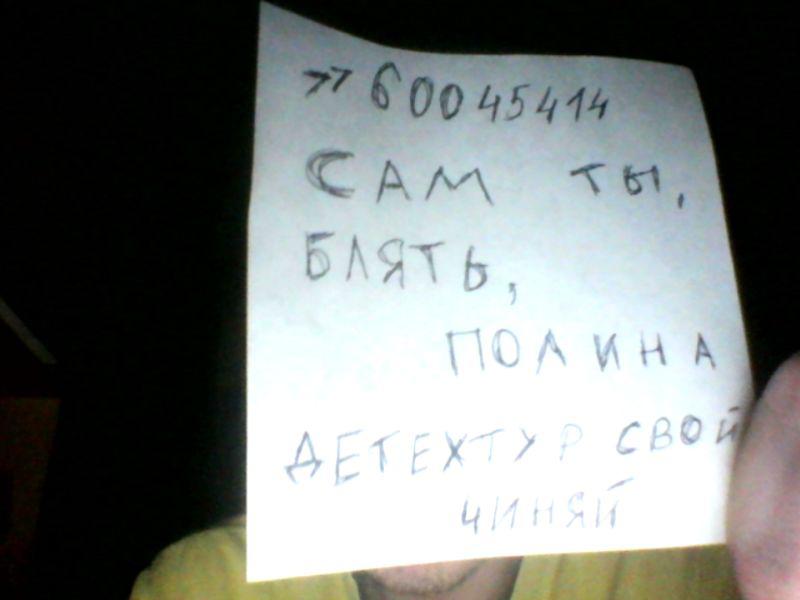 >>60045414
САМ ТЫ,
БЛЯТЬ,
ПОЛИНА
ДЕТЕХТУР СВОЙ
ЧИНЯЙ